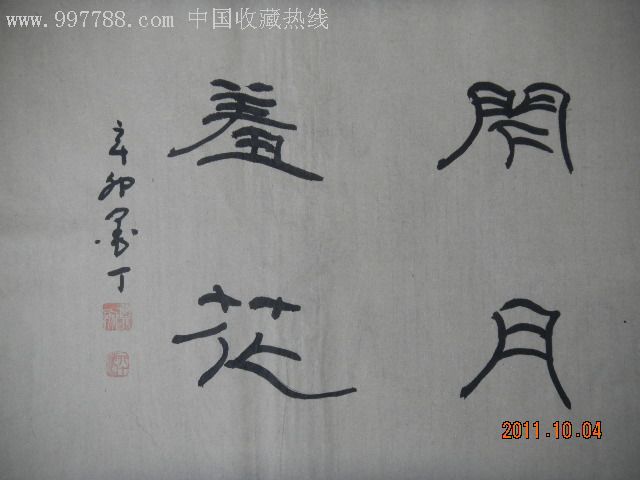 www.997788.com 中国收藏热线
閉月
羞花
辛卯 丁
2011.10.04